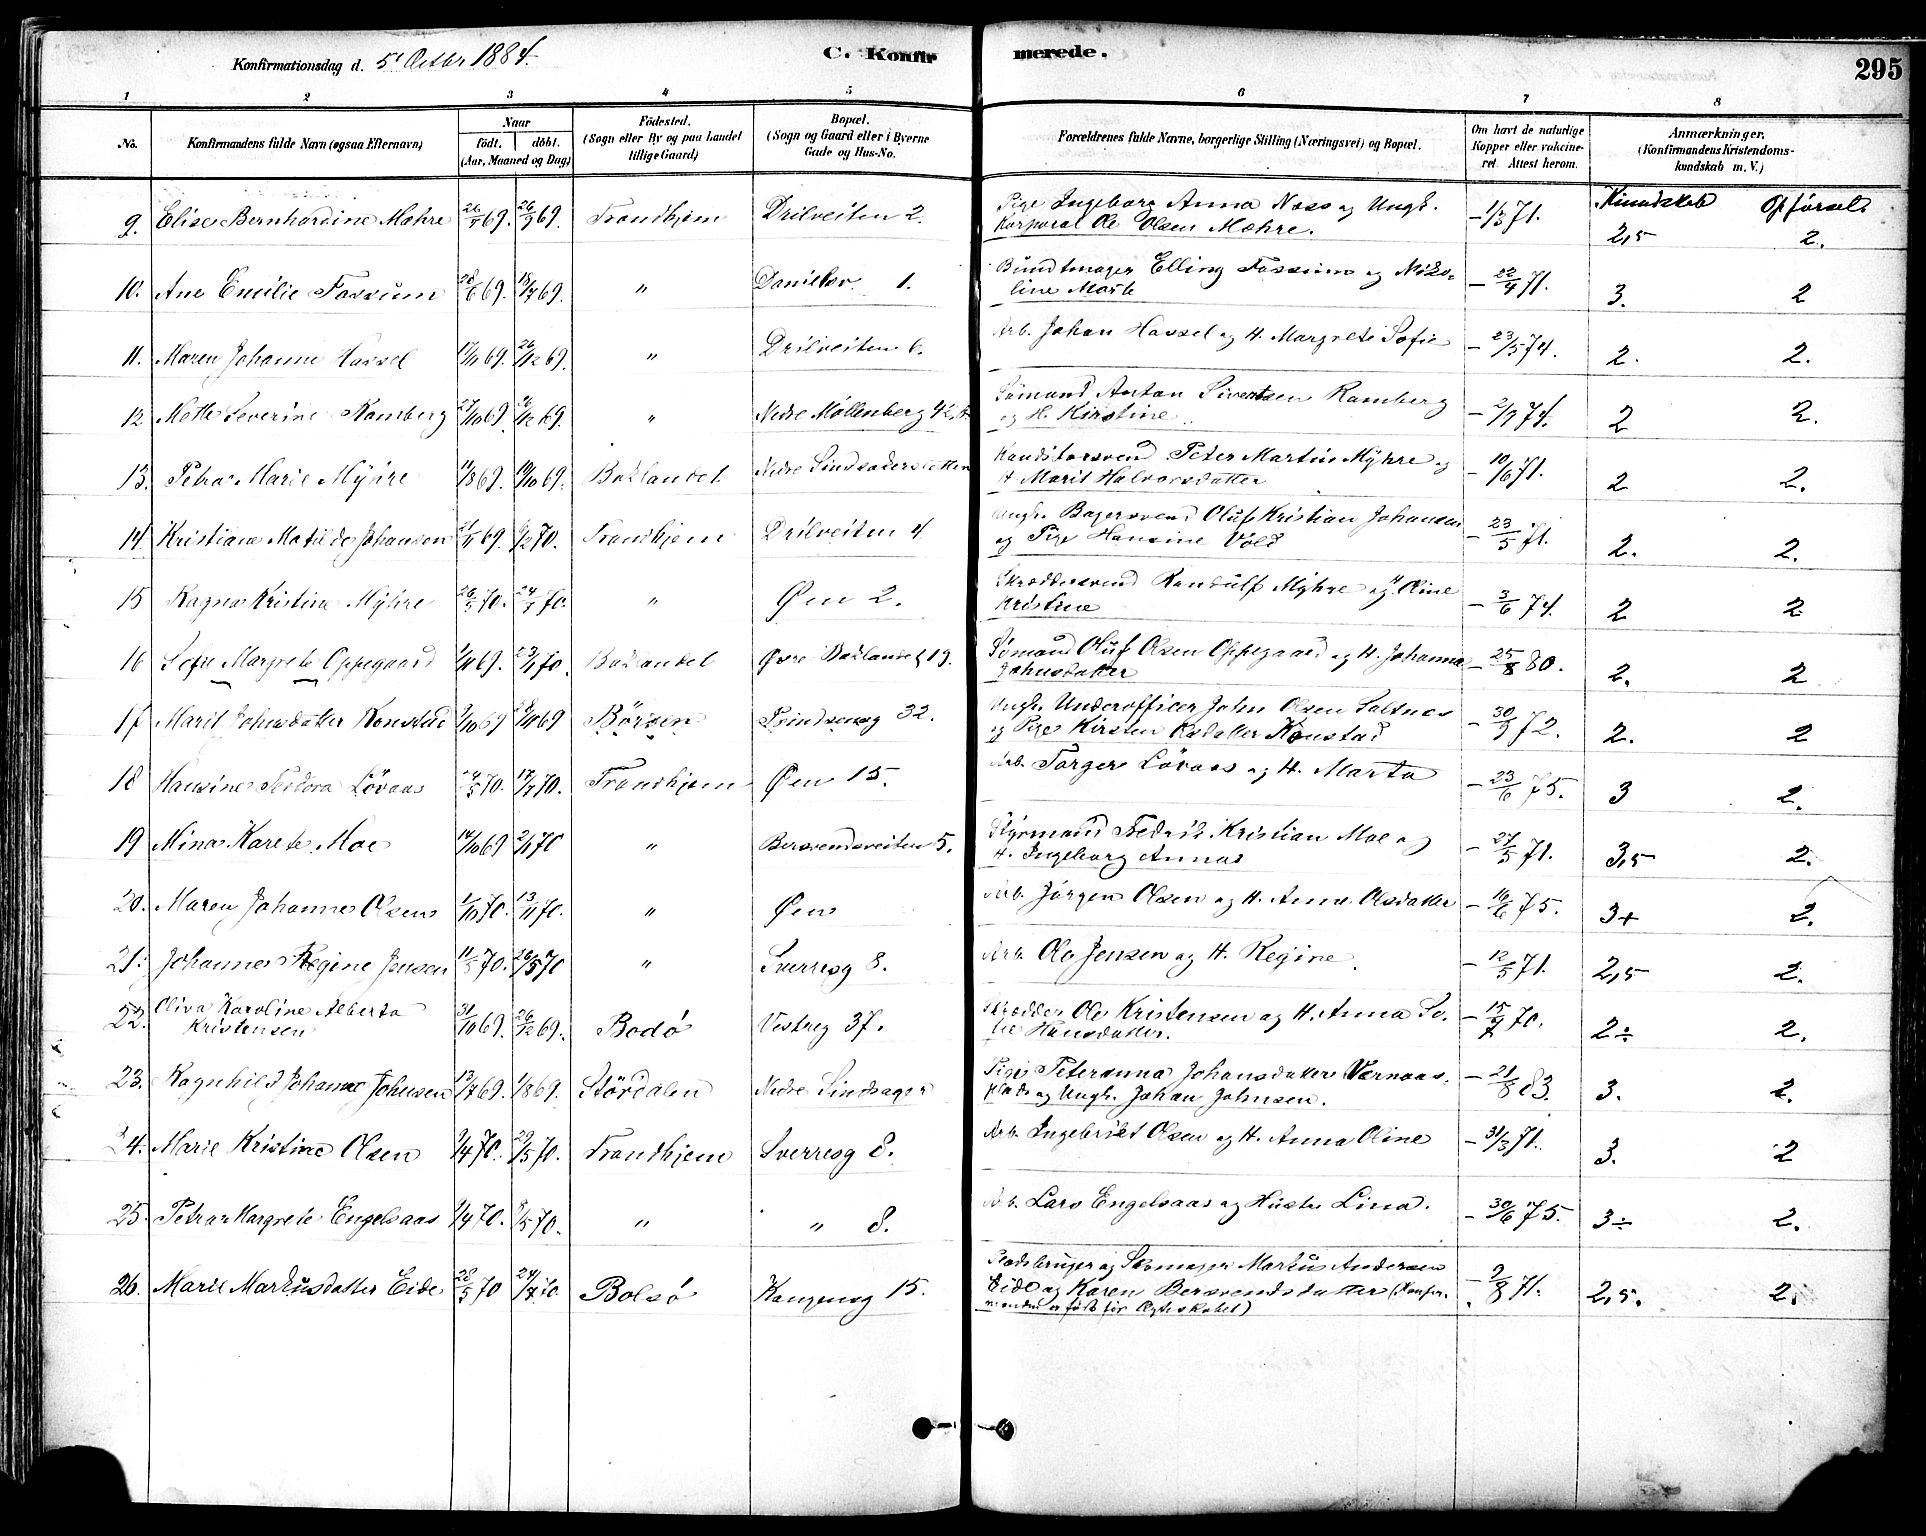 Konfirmationsdag d. 5' Octbr 1884.
C. Konfirmerede.
295
1 2 3 4 5 6 7 8
No.
Konfirmandens fulde Navn (ogsaa Efternavn)
Naar
födt. döbt.
(Aar, Maaned og Dag)
Födested.
(Sogn eller By og paa Landet
tillige Gaard)
Bopæl.
(Sogn og Gaard eller i Byerne
Gade og Hus-No.
Forældrenes fulde Navne, borgerlige Stilling (Næringsvei) og Bopæl.
Om havt de naturlige
Kopper eller vakcine-
ret. Attest herom.
Anmærkninger.
(Konfirmandens Kristendoms-
kundskab m. V.)
Kundskab Opförsel
9. Elise Bernhardine Møhre 69. 26/9 69. Trondhjem Drilveiten 2. Pige Ingeborg Anna Næss og Ungk.
Korporal Ole Olsen Møhre. – 71. 2,5 2.
10. Ane Emilie Fossum 28/6 69. 18/7 69. " 1. Bundtmager Elling Fossum og
– 22/4 71. 3. 2
11. Maren Johanne Hassel 17/11 69. 26/12 69. " Drilveiten 6. Arb. Johan Hassel og H. Margrete Sofie – 23/5 74. 2. 2.
12 Mette Severine Ramberg 27/10 69. 26/12 69. " Nedre Möllenberg 42 Sömand Anton Sivertsen Ramberg
og H. Kirstine – 2/9 74. 2 2.
13. Petra Marie Myhre 11/8 69. 10/10 69. Baklandet Nedre Konditorsvend Peter Martin Myhre og
H Marit Halvorsdatter – 10/6 71. 2 2.
14. Kristiane Matilde Johansen 21/11 69. 6/2 70. Trondhjem Drilveiten 4 Ungk. Bagersvend Oluf Kristian Johansen
og Pige Hansine Vold – 23/5 71. 2. 2.
15 Ragna Kristine Myhre 70. 24/4 70. " Øen 2. Skræddersvend Randulf Myhre og H Oline
Kristine – 3/6 74. 2 2
16 Sofie Margrete Oppegaard 69. 23/1 70. Baklandet Øvre Baklandet 19. Sömand Oluf Olsen Oppegaard og H. Johanna
Johnsdatter – 25/8 80. 2. 2
17 Marit Johnsdatter Konstad 9/10 69 69 Börsen 32. Ungk. Underofficer John Olsen Saltnes
og Pige Kirsten Olsdatter Konstad – 30/9 72. 2. 2
18 Hansine Teodora Lövaas 70. 17/7 70. Trondhjem Øen 15. Arb. Torger Lövaas og H. Marta – 23/6 75. 3 2.
19 Mina Karete Moe 14/10 69 2/1 70 " Bersvendsveiten 5. Styrmand Fredrik Kristian Moe og
H. Ingeborg Anna – 27/5 71. 3,5 2.
20. Maren Johanne Olsen 1/10 70. 13/11 70. " Øen Arb. Jörgen Olsen og H. Anne Olsdatter – 16/6 75. 3+ 2.
21. Johanne Regine Jensen 11/3 70. 26/5 70 " Sverresg 8. Arb. Ole Jensen og H. Regine – 12/5 71. 2,5 2.
22. Oliva Karoline Alberta
Kristensen 31/10 69. 26/12 69. Bodö Vestreg 37. Skrædder Ole Kristensen og H. Anna So-
fie Hansdatter. – 15/9 70. 2÷ 2.
23. Ragnhild Johanne Johnsen 13/7 69. 1/8 69. Stördalen Nedre Pige Peteranna Johansdatter Værnaas-
plads og Ungk. Johan Johnsen. – 21/8 83. 3. 2.
24. Marie Kristine Olsen 9/4 70. 29/5 70. Trondhjem Sverresg 8. Arb. Ingebrikt Olsen og H. Anna Oline – 31/3 71. 3. 2
25. Petra Margrete Engelsaas 9/4 70. 8/5 70. " " 8. Arb. Lars Engelsaas og Hustr Lina. – 30/6 75. 3÷ 2.
26. Marie Markusdatter Eide 28/5 70 24/7 70 Bolsö Kongensg 15. Pladsbruger og Markus Andersen
Eide og Karen Bersvendsdatter (Konfir-
manden er födt för Ægteskabet) – 9/8 71. 2,5. 2.